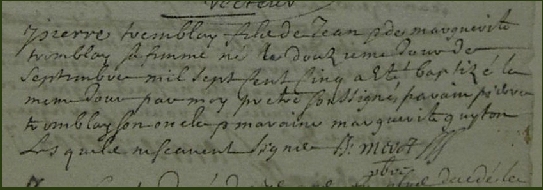 pierre tremblay fils de Jean & de marguerite
tremblay sa femme né le douzième Jour de
Septembre mil sept sent sinq a été baptizé le
mem Jour par moy pretre soussigné, parain pierre
tremblay son oncle & maraine marguerite guyton
Lesquele nescavent signer
pbre